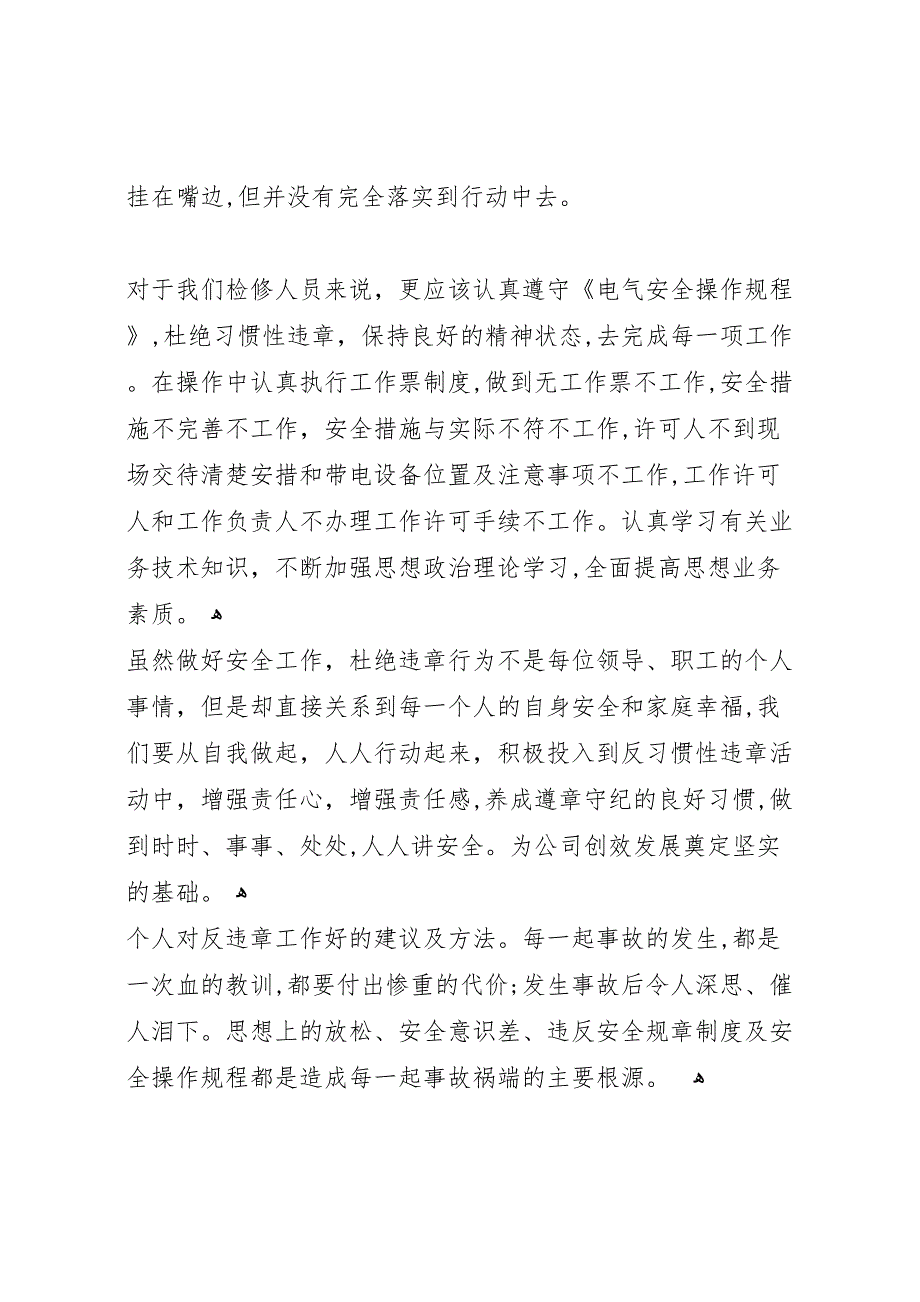 挂在嘴边,但并没有完全落实到行动中去。
对于我们检修人员来说，更应该认真遵守《电气安全操作规程
》,杜绝习惯性违章，保持良好的精神状态,去完成每一项工作
。在操作中认真执行工作票制度,做到无工作票不工作,安全措
施不完善不工作，安全措施与实际不符不工作,许可人不到现
场交待清楚安措和带电设备位置及注意事项不工作,工作许可
人和工作负责人不办理工作许可手续不工作。认真学习有关业
务技术知识，不断加强思想政治理论学习,全面提高思想业务
素质。 ﻫ
虽然做好安全工作，杜绝违章行为不是每位领导、职工的个人
事情，但是却直接关系到每一个人的自身安全和家庭幸福,我
们要从自我做起，人人行动起来，积极投入到反习惯性违章活
动中，增强责任心，增强责任感,养成遵章守纪的良好习惯,做
到时时、事事、处处,人人讲安全。为公司创效发展奠定坚实
的基础。 ﻫ
个人对反违章工作好的建议及方法。每一起事故的发生,都是
一次血的教训,都要付出惨重的代价;发生事故后令人深思、催
人泪下。思想上的放松、安全意识差、违反安全规章制度及安
全操作规程都是造成每一起事故祸端的主要根源。 ﻫ